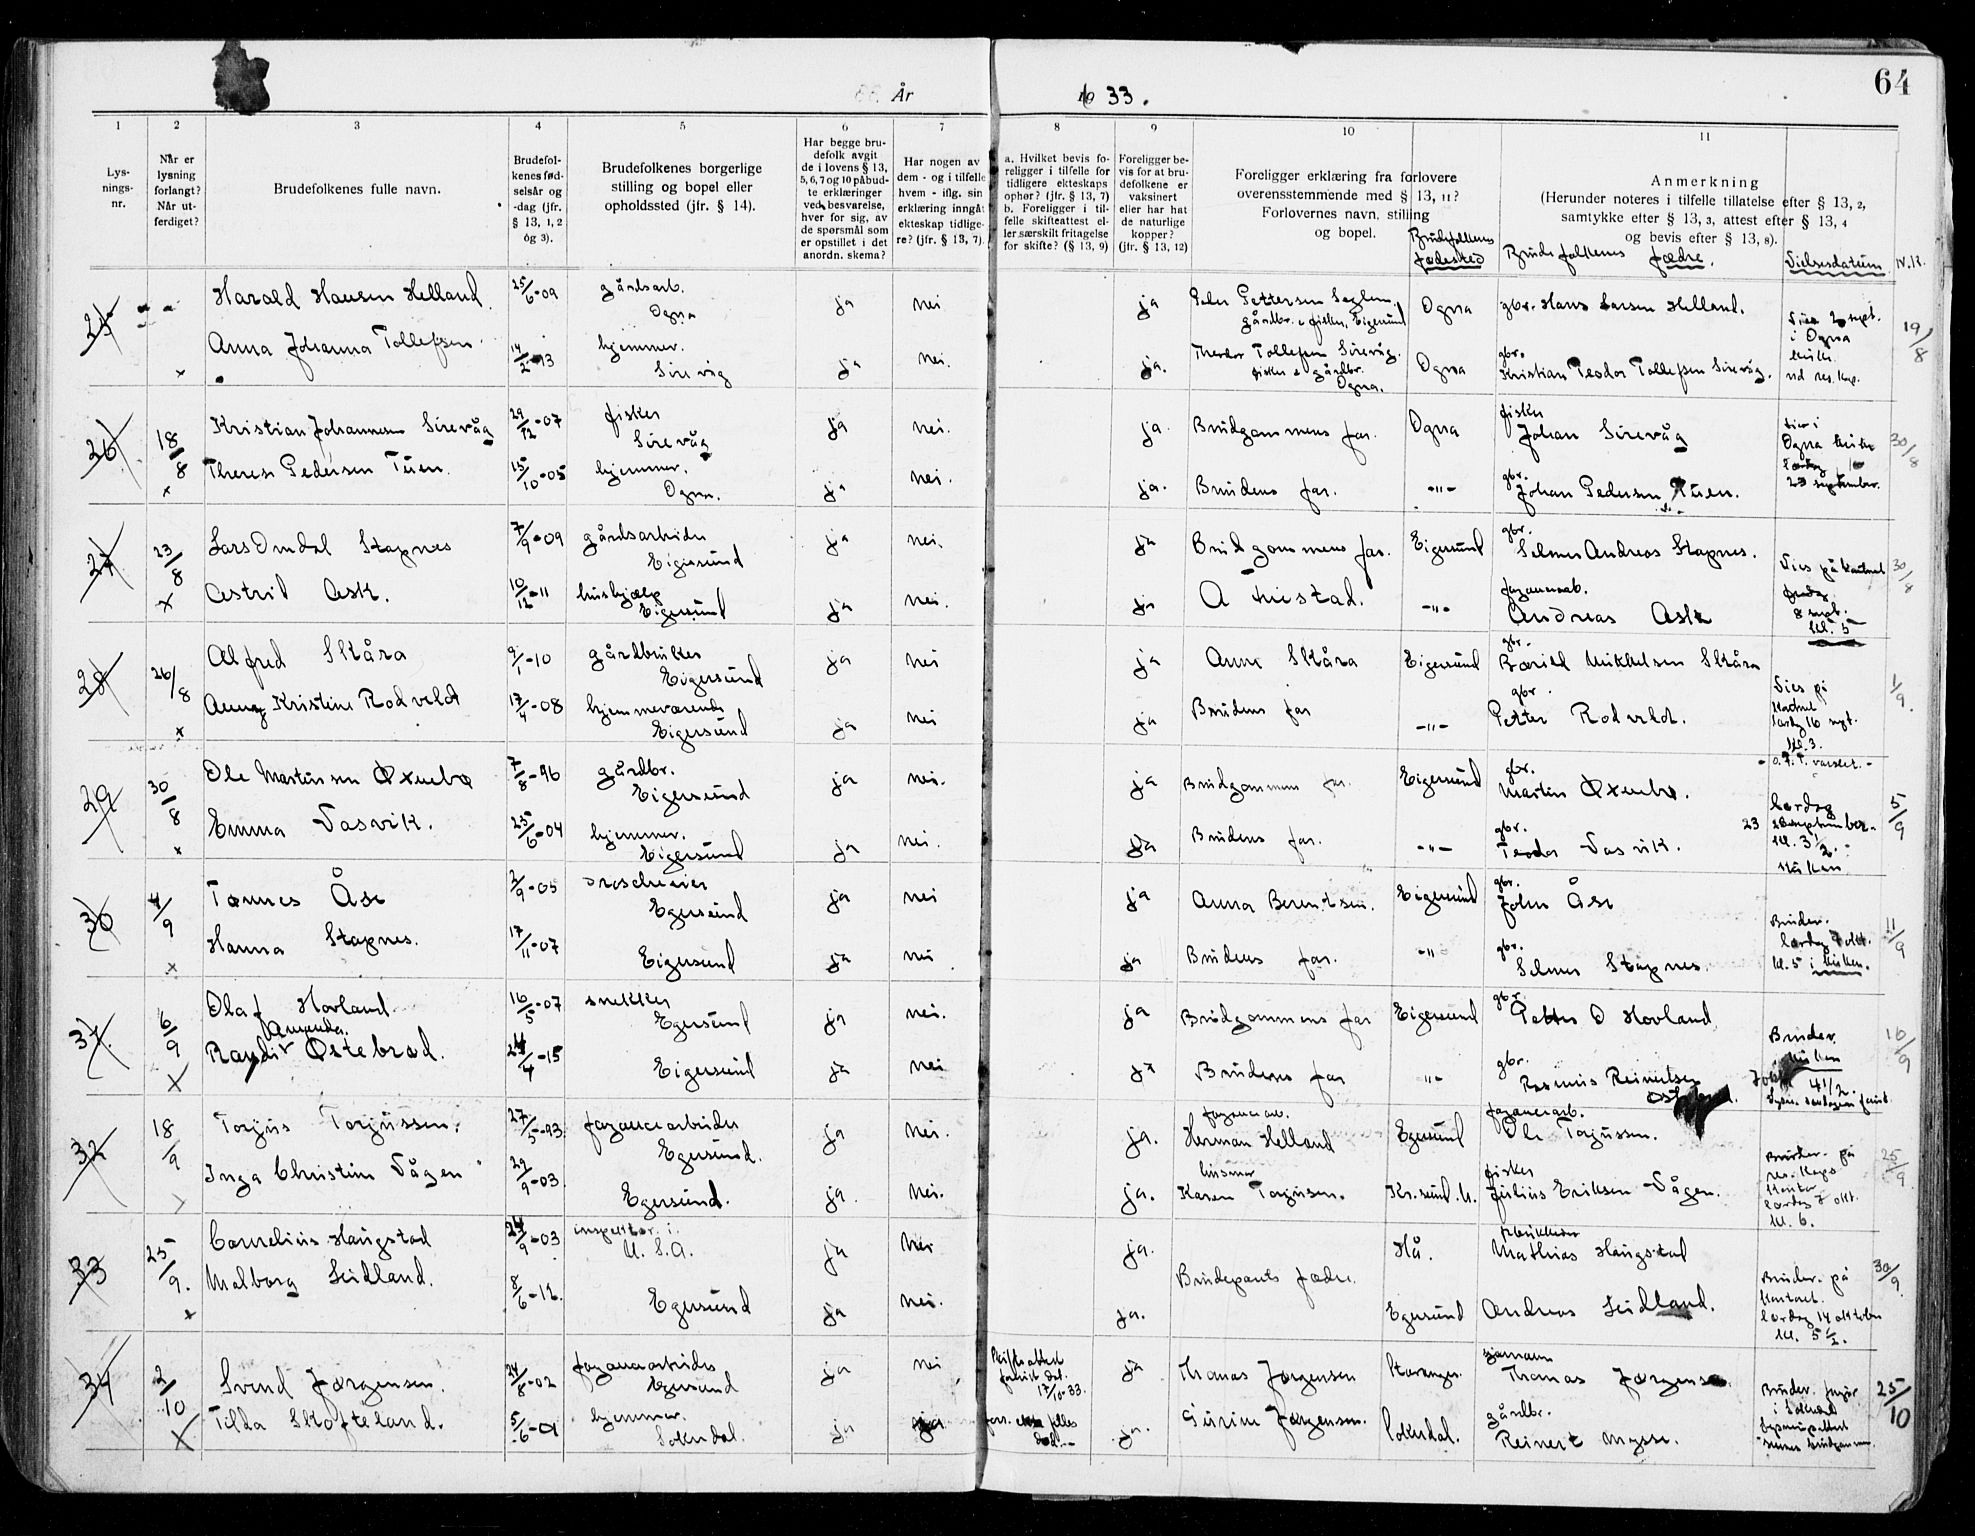 64
År 1933.
1 2 3 4 5 6 7 8 9 10 11
Lys-
nings-
nr.
Når er
lysning
forlangt?
Når ut-
ferdiget?
Brudefolkenes fulle navn.
Brudefol-
kenes fød-
selsår og
-dag (jfr.
§ 13, 1, 2
og 3).
Brudefolkenes borgerlige
stilling og bopel eller
opholdssted (jfr. § 14).
Har begge bru-
defolk avgit
de i lovens § 13,
5, 6, 7 og 10 påbud-
te erklæringer
ved besvarelse,
hver for sig, av
de spørsmål som
er opstillet i det
anordn. skema?
Har nogen av
dem - og i tilfelle
hvem - iflg. sin
erklæring inngåt
ekteskap tidlige-
re? (jfr. § 13, 7)
a. Hvilket bevis fo-
religger i tilfelle for
tidligere ekteskaps
ophør? (jfr. § 13, 7)
b. Foreligger i til-
felle skifteattest el-
ler særskilt fritagelse
for skifte? (§ 13, 9)
Foreligger be-
vis for at bru-
defolkene er
vaksinert
eller har hat
de naturlige
kopper?
(jfr. § 13, 12)
Foreligger erklæring fra forlovere
overensstemmende med § 13, 11?
Forlovernes navn, stilling
og bopel.
Brudefolkenes
fødested
Anmerkning
(Herunder noteres i tilfelle tillatelse efter § 13, 2,
samtykke efter § 13, 3, attest efter § 13, 4
og bevis efter § 13, 8).
Brudefolkenes fædre.
Vielsesdatum
25 Harald Hansen Helland 25/6-09 gårdsarb. Ogna ja nei ja Peder Pettersen gårdbr. & fisker, Eigersund Ogna gbr. Hans Larsen Helland. 19/8
Vies 2 sept.
i Ogna
kirke
Anna Johanna Tollefsen. 14/2-13 hjemmev. Sirevåg ja nei. ja. Theodor Tollefsen Sirevåg. fisker & gårdbr. Ogna. Ogna gbr. Kristian Teodor Tollefsen Sirevåg.
26 18/8 Kristian Johannesen Sirevåg 29/12-07 fisker Sirevåg ja nei. ja. Brudgommens far. Ogna fisker Johan Sirevåg 30/8
Vies i
Ogna kirke
lørdag
23 september.
Therese Pedersen Tuen. 15/10-05 hjemmev. Ogna. ja nei. ja. Brudens far. -"- gbr. Johan Pedersen Tuen.
27 23/8 Lars Omdal Stapnes 7/9-09 gårdsarbeider Eigersund ja nei. ja Brudgommens far. Eigersund gbr. Selmer Andreas Stapnes. 30/8
Vies på kontoret
fredag
8 sept.
kl. 5
Astrid Ask. 10/12-11 hushjælp Eigersund ja nei. ja -"- fayancearb. Andreas Ask
28 26/8 Alfred Skåra 9/1-10 gårdbruker Eigersund ja nei ja Anne Skåra Eigersund gbr. Mikkelsen Skåra 1/9.
Vies på
kontoret
lørdag 16 sept.
kl. 3.
Anny Kristine Rodvelt 17/4-08 hjemmeværende Eigersund ja nei ja Brudens far -"- gbr. Petter Rodvelt.
29 30/8 Ole Martinsen Øxnebø 7/8-96 gårdbr. Eigersund ja nei. ja Brudgommens far. Eigersund gbr. Martin Øxnebø. 5/9
lørdag
23 september.
kl. 3 1/2.
Emma Vasvik. 25/6-04 hjemmev. Eigersund ja nei. ja Brudens far. -"- gbr. Teodor Vasvik.
30 4/9 Tønnes Åse 2/9-05 droscheeier Egersund ja nei ja Anna Berentsen. Eigersund gbr. John Åse 11/9
Brudev.
lørdag 7 okt.
kl. 5 i kirken.
Hanna Stapnes. 17/11-07 Eigersund ja nei ja Brudens far. -"- gbr. Selmer Stapnes.
31. 6/9 Olaf Hovland 16/5-07 snekker Egersund ja nei. ja Brudgommens far Eigersund gbr. Petter O Hovland 16/9
Brudev.
kirken
4 1/2.
Randi Amanda Østebrød. 24/4-15 Eigersund ja nei ja Brudens far -"- gbr. Rasmus Reinertsen
32 18/9 Torjus Torjussen. 27/5-93 fayancearbeider Egersund. ja nei. ja. fayancearb. Herman Helland Egersund fayancearb. Ole Torjussen. 25/9
Brudev. på
res. kaps
kontor
lørdag 7 okt.
kl. 6.
Inga Christine Vågen 29/9-03. Egersund. ja. nei. ja. husmor Karen Torjusen. Kr.sund. N. fisker Julius Eriksen Vågen.
33 25/9. Cornelius Haugstad 24/9-03 inspektør i U.S.A. ja nei ja. Brudeparets fædre. Hå. Mathias Haugstad 30/9
Brudev. på
kontoret.
lørdag 14 oktober
kl. 5 1/2.
Malborg Seidland. 8/6-12. Egersund ja nei. ja. Egersund Andreas Seidland.
34 2/10 Svend Jørgensen. 24/8-02 fayancearbeider Egersund ja nei Skifteattest
17/10-33. ja Thomas Jørgensen Stavanger. sjømann Thomas Jørgensen. 25/10
Brudev.
i Sokndal
Tilda Skofteland. 5/6-01 hjemmev. Sokndal. ja ja ja. Gurine Jørgensen. Sokndal. gårdbr. Reinert Mysse.